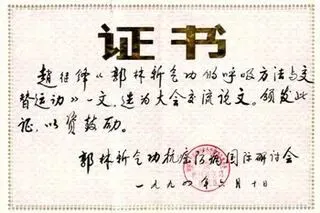 证书
赵继锋《郭林新气功的呼吸方法与交
替运动》一文，选为大会交流论文。颁发此
证，以资鼓励。
郭林新气功抗癌防病国际研讨会
一九九〇年六月十日